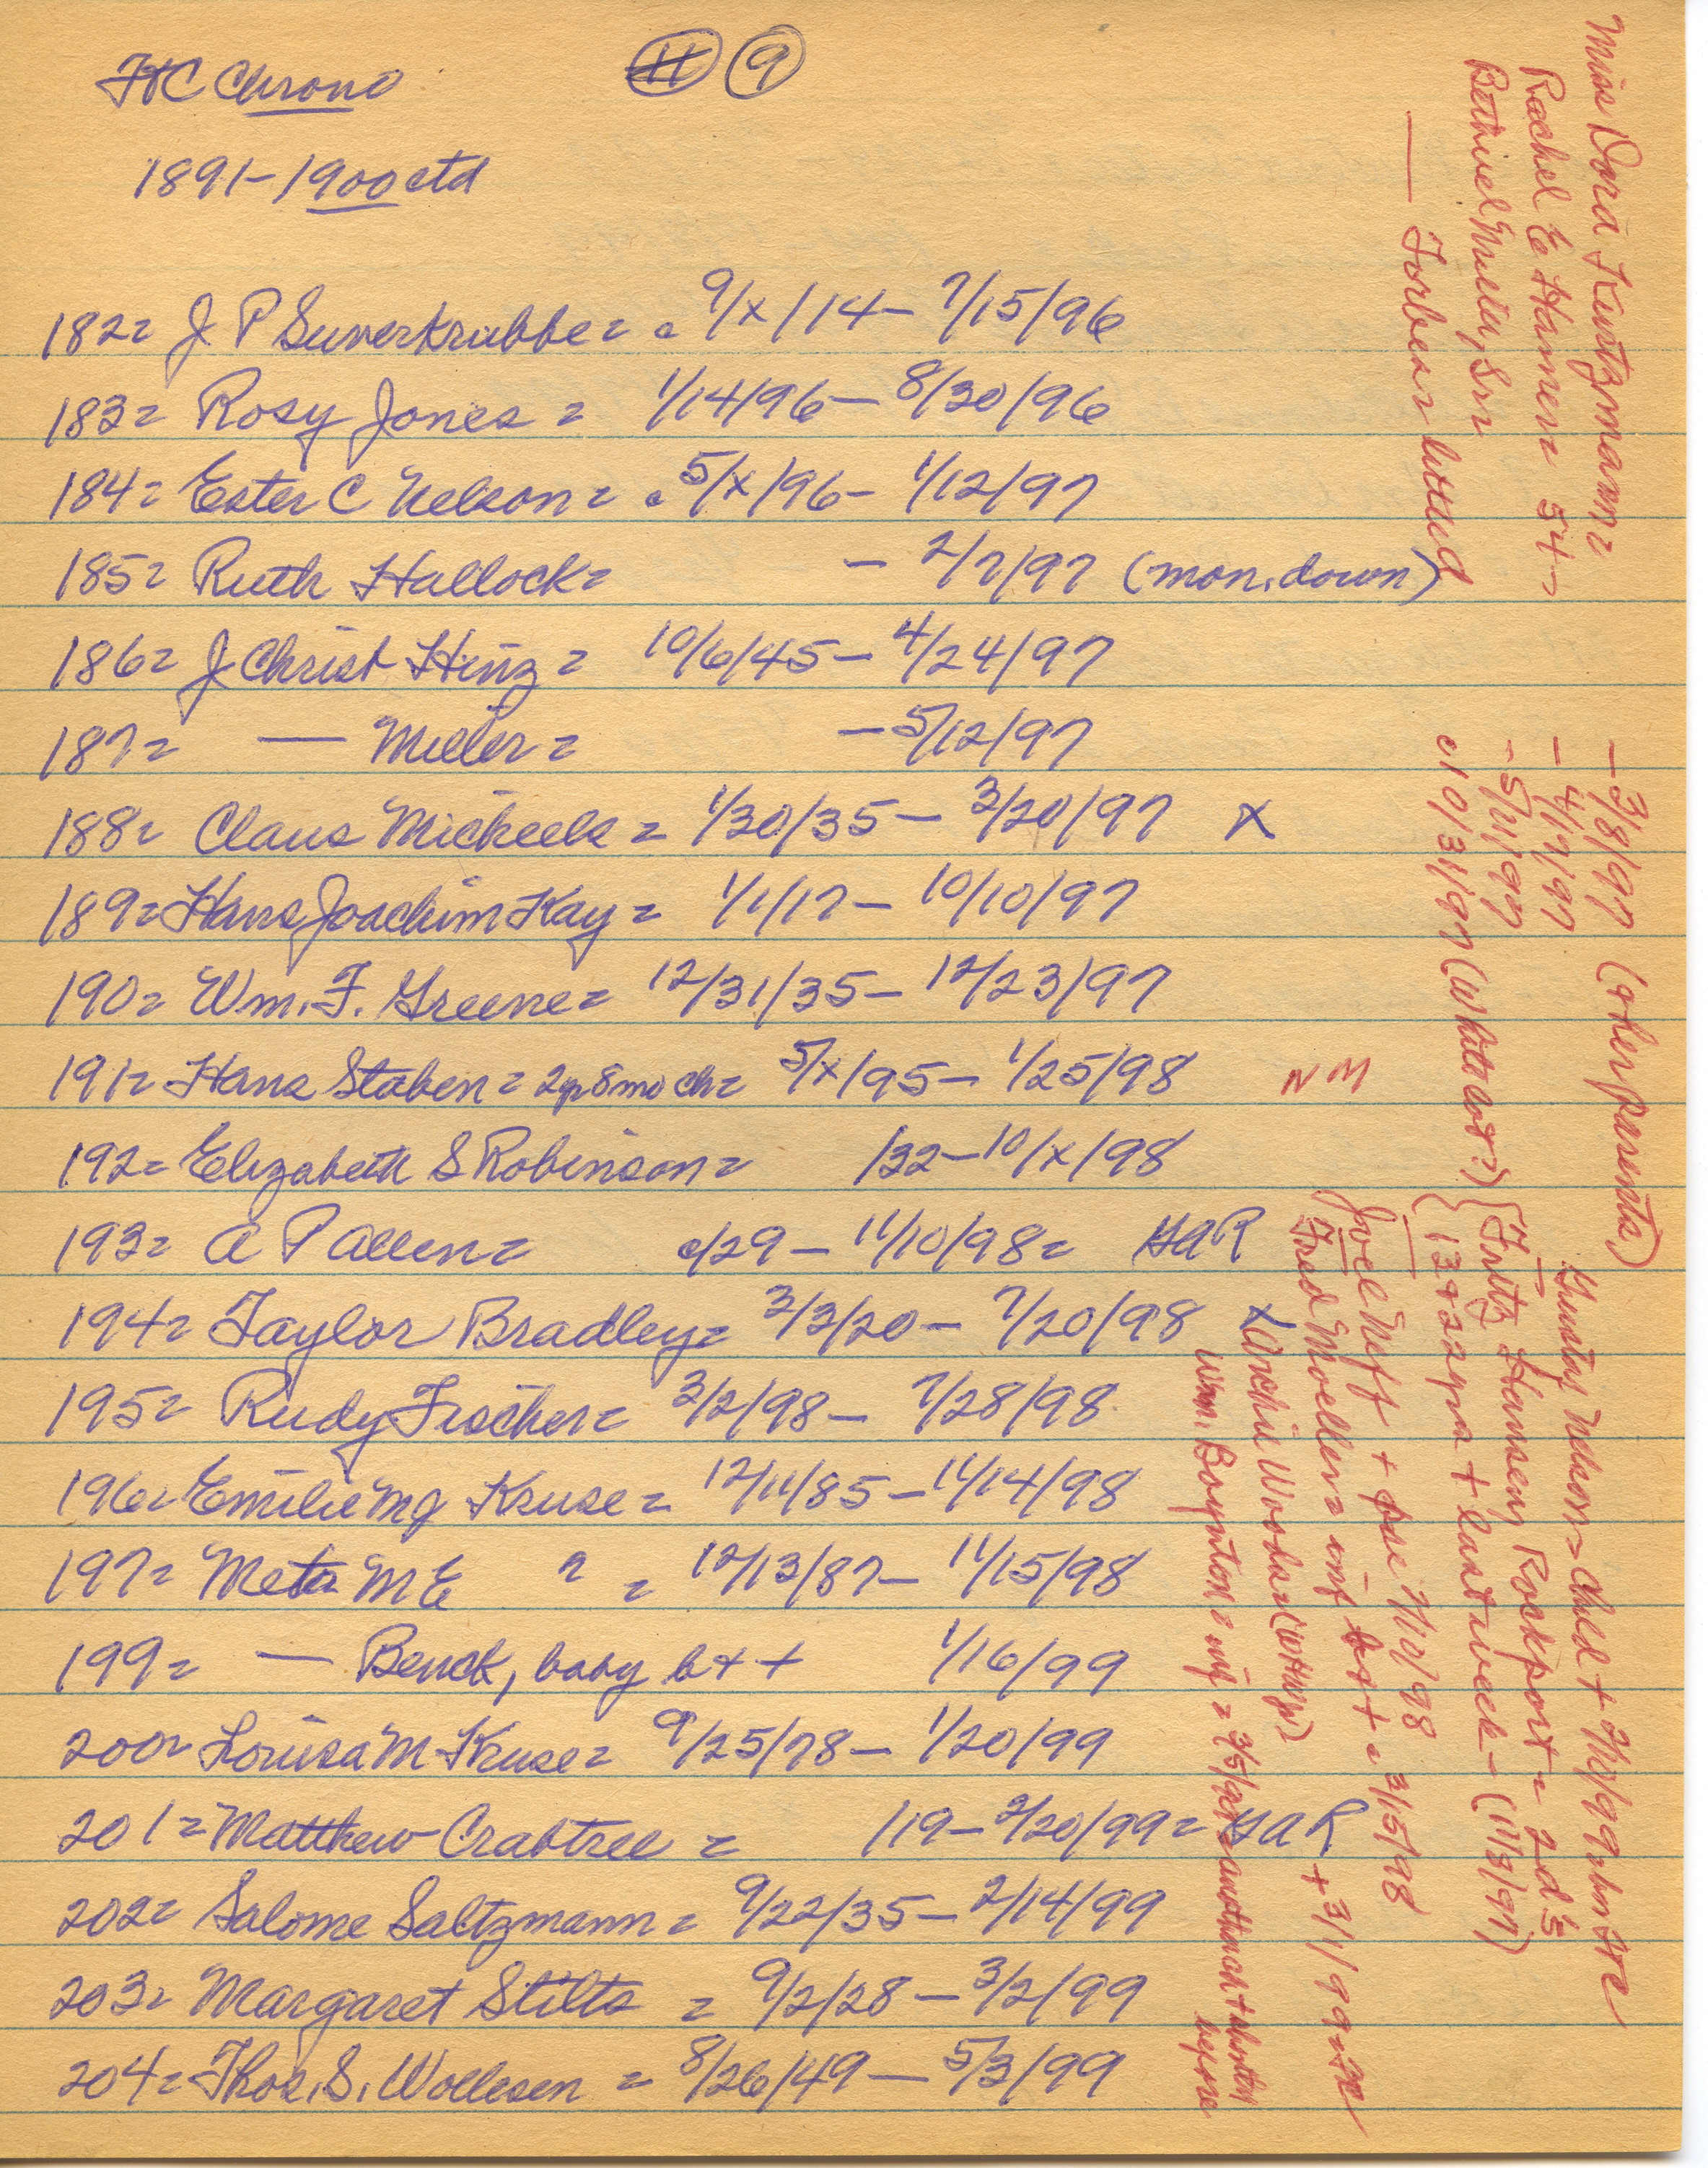 HC Chrono 11 9
1891-1900 ctd
182= J. P Suverkrubbe = c 9/x/14- 7/15/96
183= Rosy Jones = 1/14/96- 8/30/96
184= Ester C Nelson = c 5/x/96- 1/12/97
185= Ruth Hallock= - 2/7/97 (mon. down)
186= J Christ Hinz = 10/6/45- 4/24/97
187= — Miller = -5/12/97
188= Claus Micheels = 1/30/35- 3/20/97 X
189= Hans Joachim Kay = 1/1/17- 10/10/97
190= Wm. F. Greene= 12/31/35- 12/23/97
191= Hans Staben = 2yr8mo ch= 5/x/95- 1/25/98 NM
192= Elizabeth S Robinson= /32-10/x/98
193= A P Allen= c/29- 11/10/98= HAR
194= Taylor Bradley= 3/3/20- 7/20/98 X
195= Rudy Fischer= 3/2/98- 7/28/98
196= Emilie MJ Kruse = 12/11/85-11/14/98
197= Meta ME " = 12/13/87- 11/15/98
199= — Benck, baby b++ 1/16/99
200= Louisa M Kruse= 9/25/78- 1/20/99
201= Matthew Crabtree = /19-2/20/99= HAR
202= Salome Saltzmann = 9/22/35- 2/14/99
203= Margaret Stilts = 9/2/28-3/2/99
204= Thos. S. Wollesen = 8/26/49- 5/3/99
Miss Dora Kuntzmann= -3/8/97 (other parents)
Rachel E Hanner= 54- -4/7/97
Bethuel Sr= -5/11/97
— Forbes= c10/31/97 (Whittcot?)
Gustav Nelson= child +
Fritz Hansen, Rockport= 2 d's
13+22yrs + last week- (11/3/97)
Joel Neff + /98
Fred Moeller= inf b++ = 3/15/98
Archie Woods= +3/1/99=
Wm. Boynton= inf = before